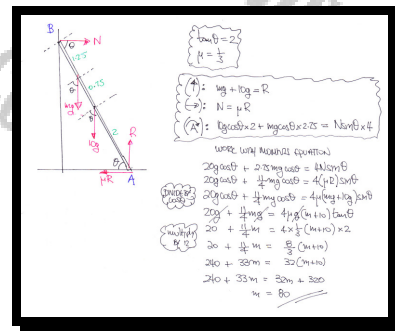 B
N
θ
1.25
0.75
θ
mg
θ
10g
2
R
θ
μR
A
tanθ = 2
μ = 1/3
(↑): mg + 10g = R
(→): N = μR
(A): 10gcosθ×2 + mgcosθ×2.75 = Nsinθ×4
WORK WITH MOMENTS EQUATION
20gcosθ + 2.75mgcosθ = 4Nsinθ
20gcosθ + 11/4 mgcosθ = 4(μR)sinθ
DIVIDE BY cosθ
20gcosθ + 11/4 mgcosθ = 4μ(mg+10g)sinθ
20g + 11/4 mg = 4μg(m+10)tanθ
MULTIPLY BY 12
20 + 11/4 m = 4×1/3(m+10)×2
20 + 11/4 m = 8/3(m+10)
240 + 33m = 32(m+10)
240 + 33m = 32m + 320
m = 80